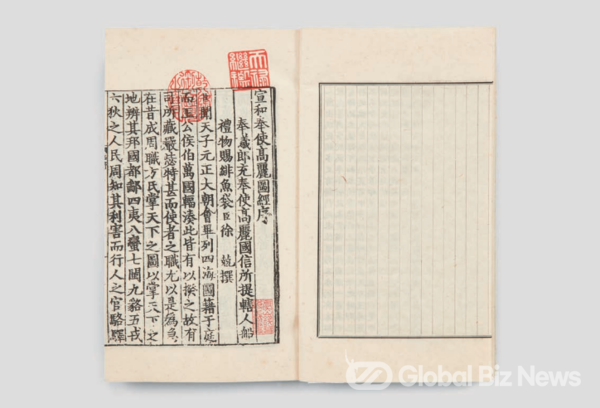 宣和奉使高麗圖經序
奉議郎充奉使高麗國信所提轄人船
禮物賜緋魚袋臣徐兢撰
臣聞天子元正大朝會畢列四海圖籍于庭
而王公侯伯萬國輻湊此皆有以揆之故有
司所藏嚴毖特甚而使者之職尤以是為急
在昔成周職方氏掌天下之圖以掌天下之
地辨其邦國都鄙四夷八蠻七閩九貉五戎
六狄之人民周知其利害而行人之官駱驛
天祿繼鑑
Global Biz News